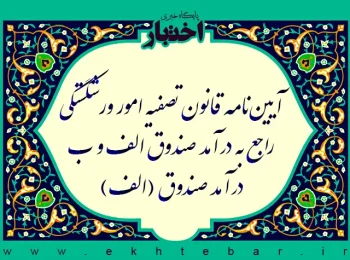 پایگاه خبری
اختبار
آیین‌نامه قانون تصفیه امور ورشکستگی
راجع به درآمد صندوق الف و ب
درآمد صندوق (الف)
www.ekhtebar.ir